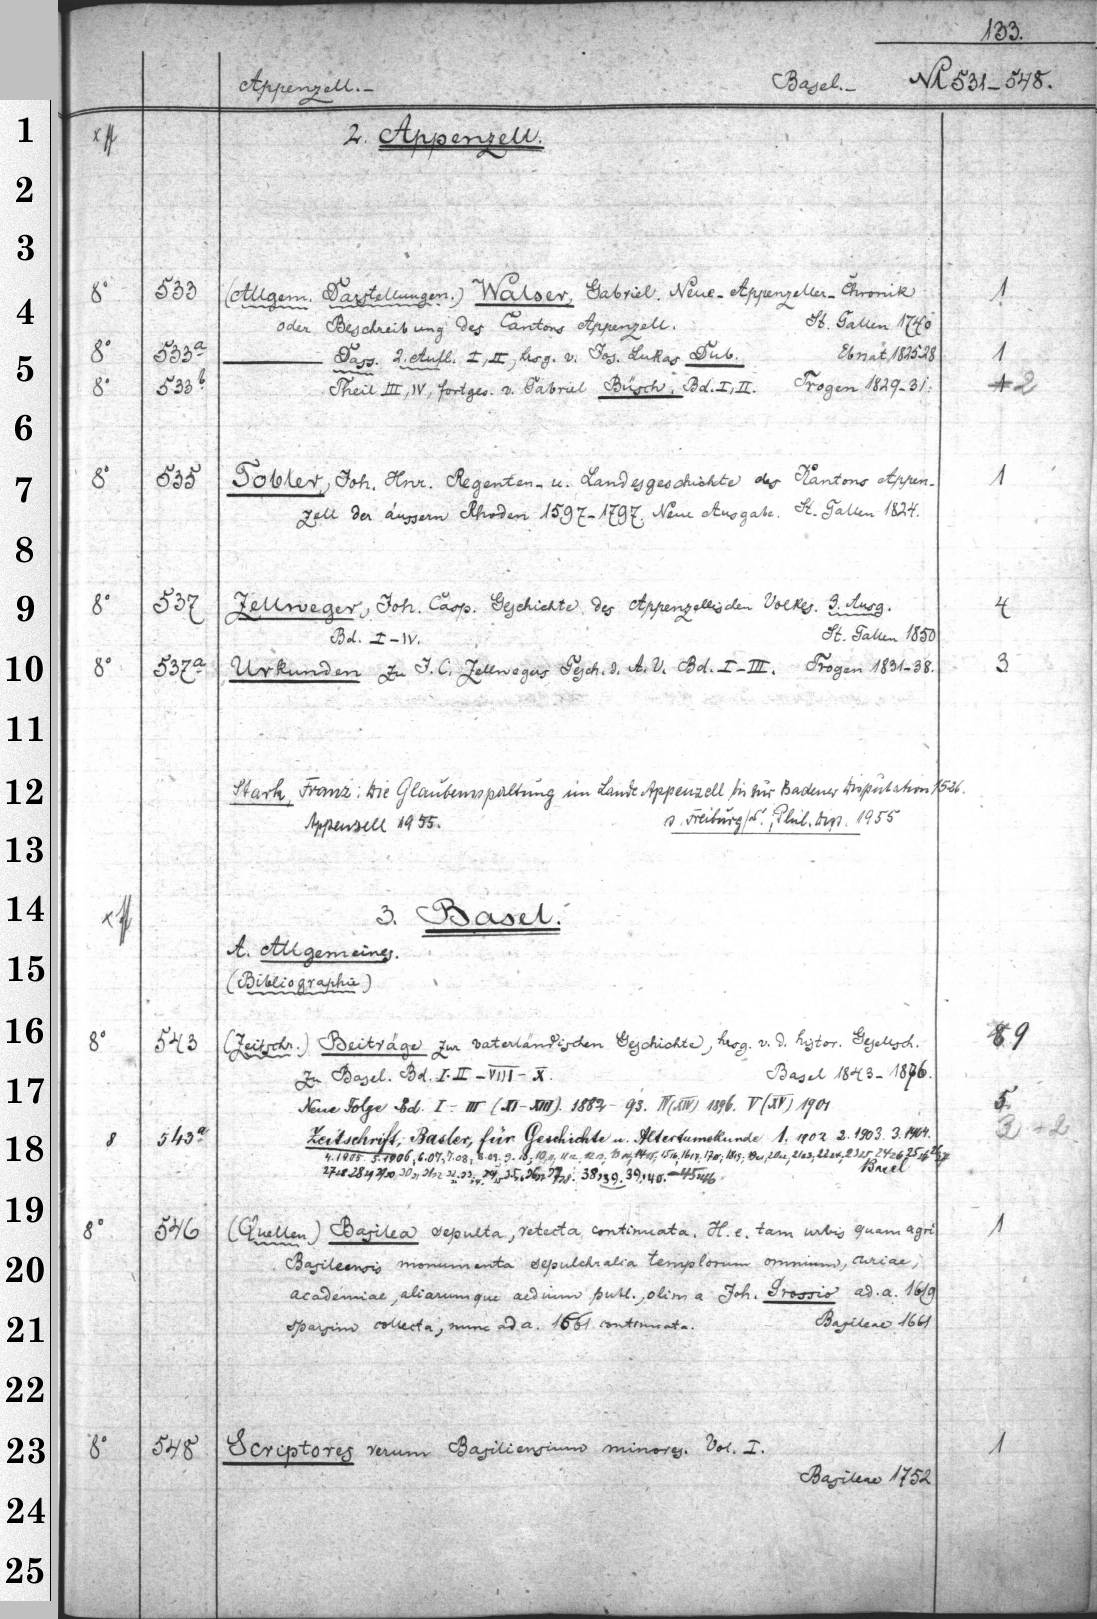 133.
Appenzell.- Basel.- No 531-548.
1
2. Appenzell.
2
3
4
8° 533 (Allgem. Darstellungen.) Walser, Gabriel, Neue-Appenzeller-Chronik 1
oder Beschreibung des Cantons Appenzell. St. Gallen 1740
5
8° 533a Dass. 2. Aufl. I, II, hrsg. v. Jos. Lukas Dub. Ebnat, 1825-28 1
8° 533b Theil III, IV, fortges. v. Gabriel Büsch, Bd. I, II. Trogen 1829-31. 2
6
7
8° 535 Tobler, Joh. Hnr. Regenten- u. Landesgeschichte des Kantons Appen- 1
zell der äussern Rhoden 1597-1797. Neue Ausgabe. St. Gallen 1824.
8
9
8° 537 Zellweger, Joh. Casp. Geschichte des Appenzellischen Volkes. 3. Ausg. 4
Bd. I-IV. St. Gallen 1850
10
8° 537a Urkunden zu J. C. Zellwegers Gesch. d. A. V. Bd. I-III. Trogen 1831-38. 3
11
12
Stark, Franz: Die Glaubensspaltung im Lande Appenzell bis zur Badener Disputation 1526.
Appenzell 1955. s. Freiburg/S., Phil. Diss. 1955
13
14
3. Basel.
A. Allgemeines.
15
(Bibliographie)
16
8° 543 (Zeitschr.) Beiträge zur vaterländischen Geschichte, hrsg. v. d. histor. Gesellsch. 9
zu Basel. Bd. I. II - VIII - X. Basel 1843-1876.
17
Neue Folge Bd. I - III (XI-XIII). 1882 - 93. IV (XIV) 1896. V (XV) 1901 5
18
8 543a Zeitschrift, Basler, für Geschichte u. Altertumskunde 1. 1902 2. 1903. 3. 1904. 3 + 2
4. 1905. 5. 1906, 6. 07,
Basel
38, 39. 39, 40. - 45, 46
19
8° 546 (Quellen) Basilea sepulta, retecta continuata. H. e. tam urbis quam agri 1
20
Basileensis monumenta sepulchralia templorum omnium, curiae,
academiae, aliarumque aedium publ., olim a Joh. Grossio ad. a. 1619
21
sparsim collecta, nunc ad a. 1661 continuata. Basileae 1661
22
23
8° 548 Scriptores rerum Basiliensium minores. Vol. I. 1
Basileae 1752
24
25